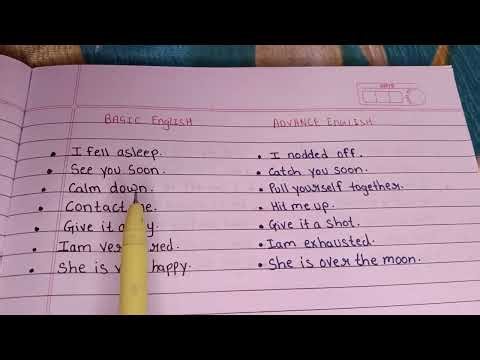 BASIC English ADVANCE English
• I fell asleep. • I nodded off.
• See you soon. • Catch you soon.
• Calm down. • Pull yourself together.
• Contact • Hit me up.
• Give it a • Give it a shot.
• Iam • Iam exhausted.
• She is happy. • She is over the moon.